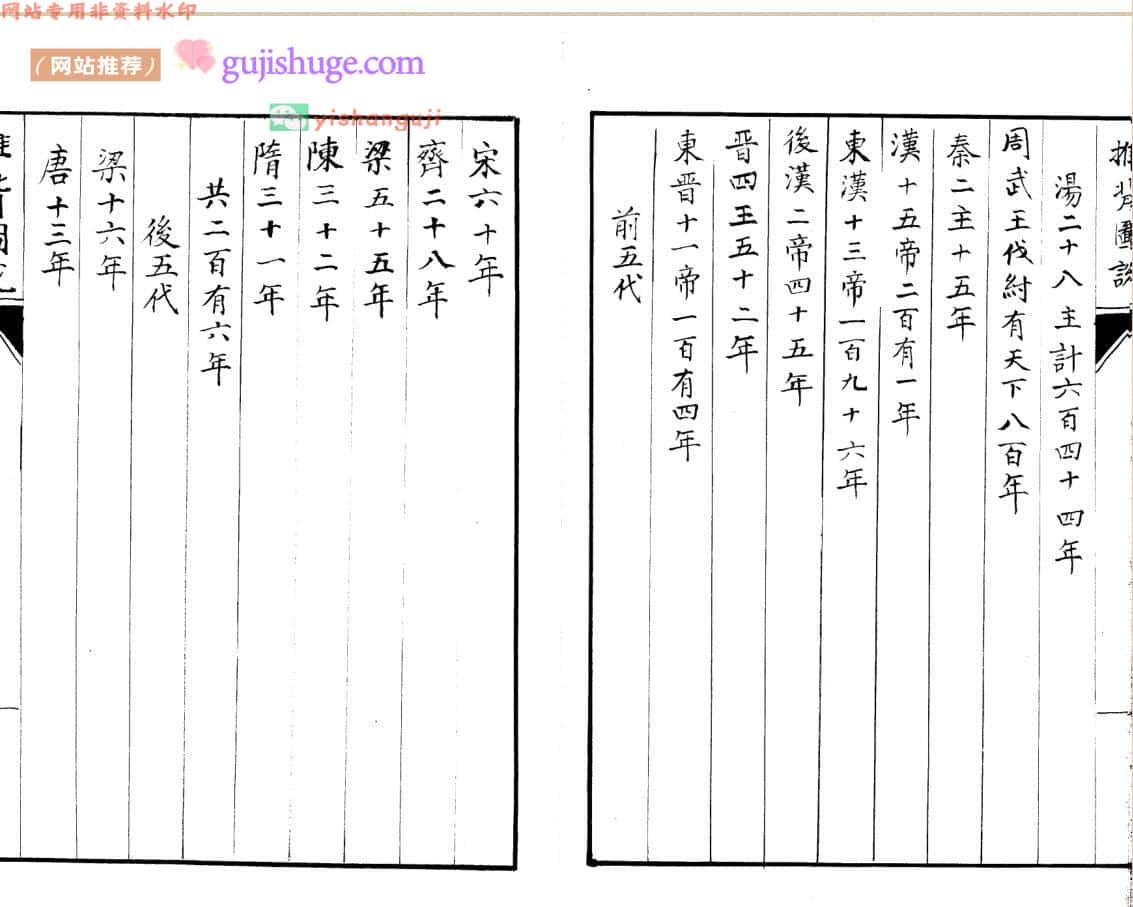 网站专用非资料水印
（网站推荐）
gujishuge.com
yishanguji
推背圖說
湯二十八主計六百四十四年
周武王伐紂有天下八百年
秦二主十五年
漢十五帝二百有一年
東漢十三帝一百九十六年
後漢二帝四十五年
晋四王五十二年
東晋十一帝一百有四年
前五代
宋六十年
齊二十八年
梁五十五年
陳三十二年
隋三十一年
共二百有六年
後五代
梁十六年
唐十三年